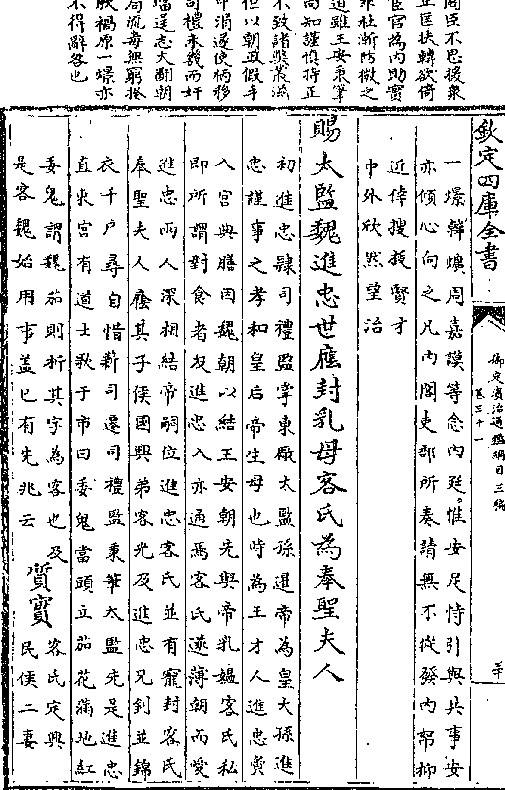 欽定四庫全書
御定資治通鑑綱目三編
卷三十一
一燝韓爌周嘉謨等念內廷惟安足恃引與共事安
亦傾心向之凡內閣吏部所奏請無不從發內帑抑
近倖搜拔賢才
中外欣然望治
賜太監魏進忠世廕封乳母客氏為奉聖夫人
初進忠隸司禮監掌東廠太監孫暹帝為皇太孫進
忠謹事之孝和皇后帝生母也時為王才人進忠夤
入宮典膳因魏朝以結王安朝先與帝乳媼客氏私
即所謂對食者及進忠入亦通焉客氏遂薄朝而愛
進忠兩人深相結帝嗣位進忠客氏並有寵封客氏
奉聖夫人廕其子侯國興弟客光先及進忠兄釗並錦
衣千户尋自惜薪司遷司禮監秉筆太監先是進忠
直東宮有道士歌于市曰委鬼當頭立茄花滿地紅
委鬼謂魏茄則析其字為客也及
是客魏始用事盖已有先兆云
質實
客氏定興
民侯二妻
閣臣不思援衆
正匡扶韓欲倚
宦官為內助實
道雖王安秉筆
尚知謹慎持正
不致諸弊叢滋
但以朝政假手
中涓遂使柄移
司禮未幾而奸
璫逞志大亂朝
不得辭咎也